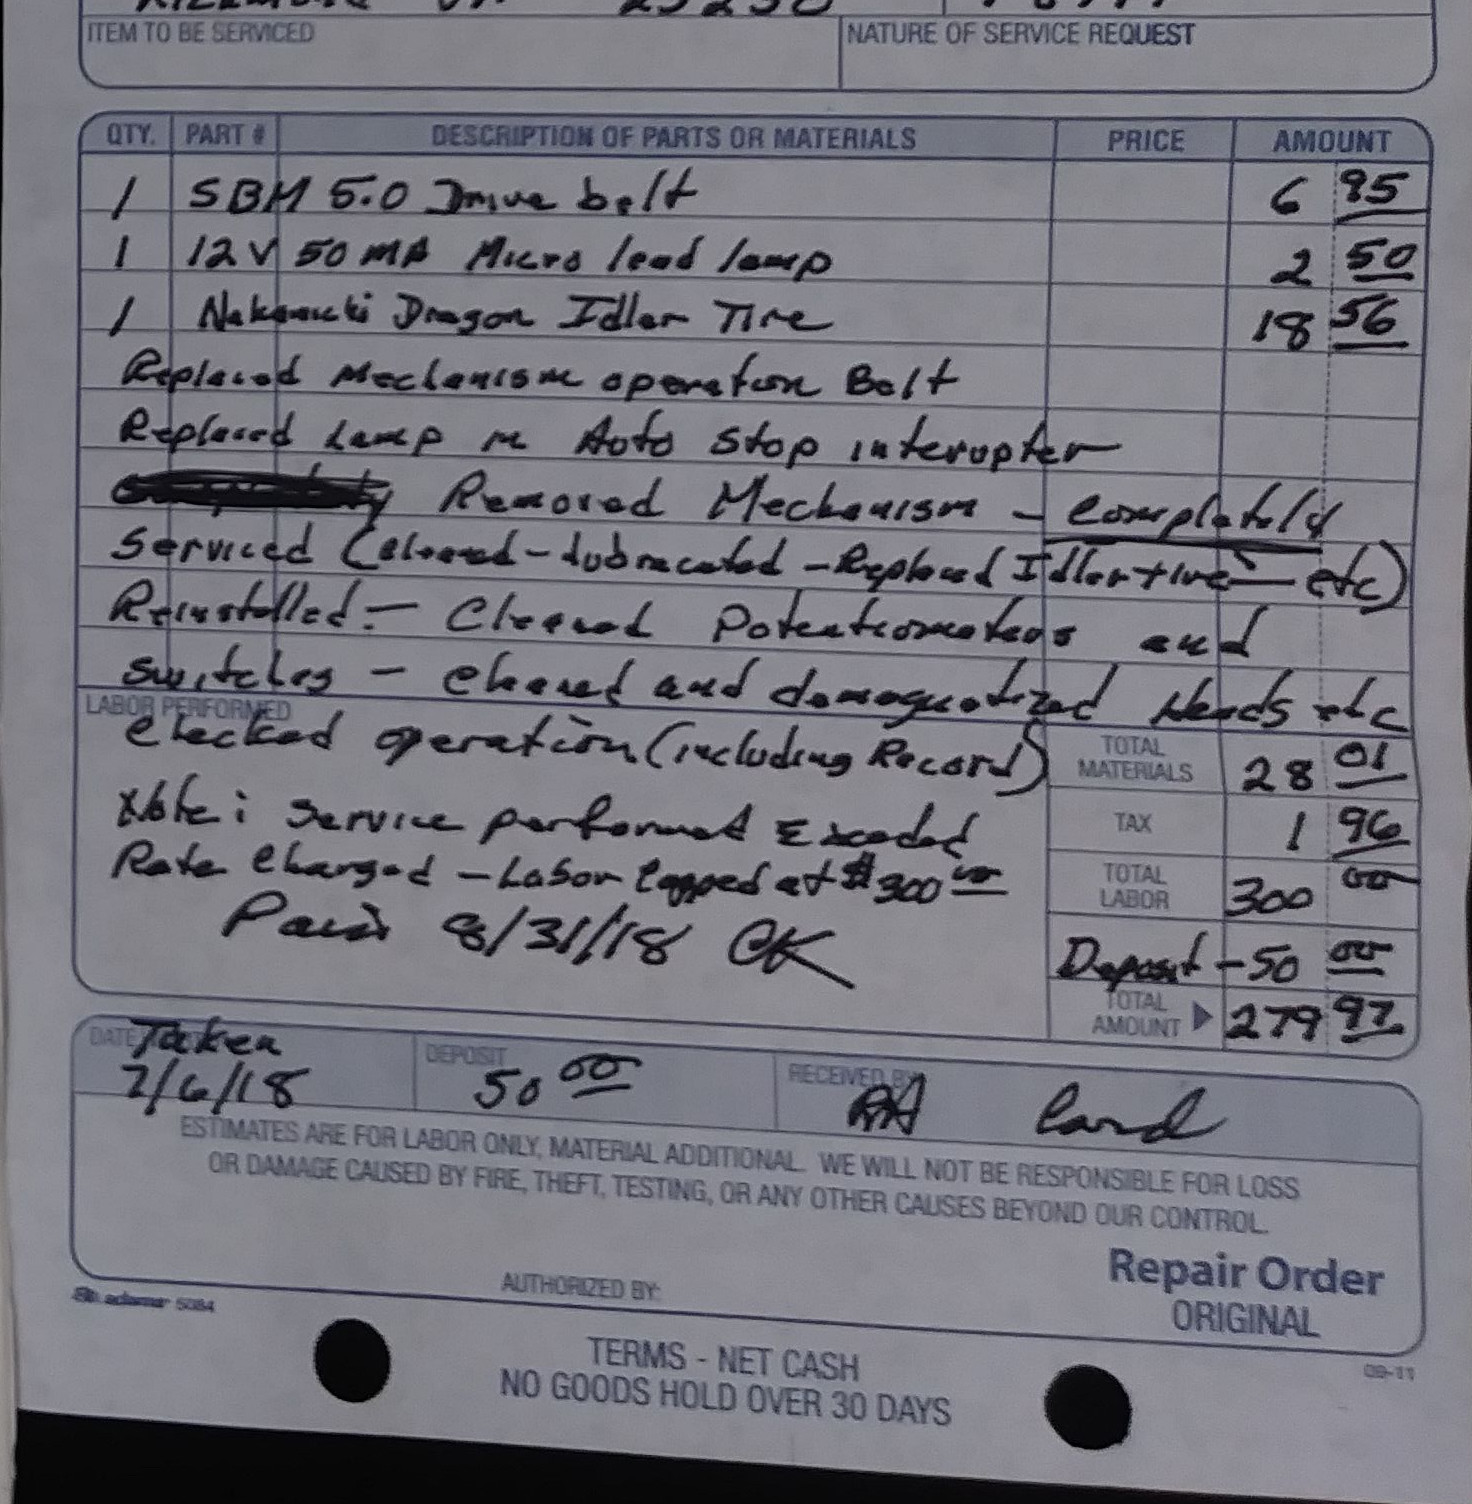 23230
ITEM TO BE SERVICED NATURE OF SERVICE REQUEST
QTY. PART # DESCRIPTION OF PARTS OR MATERIALS PRICE AMOUNT
1 SBM 5.0 Drive belt 6 95
1 12V 50 MA Micro lead lamp 2 50
1 Nakamichi Dragon Idler Tire 18 56
Replaced Mechanism operation Belt
Replaced Lamp in Auto Stop interupter
Removed Mechanism - completely
Serviced (cleaned - lubricated - Replaced Idler tire - etc)
Reinstalled - Cleaned Potentiometers and
switches - cleaned and demagnetized Heads etc
LABOR PERFORMED
checked operation (including Record)
TOTAL MATERIALS 28 01
Note: Service performed Exceded
TAX 1 96
Rate charged - Labor capped at $300 00
TOTAL LABOR 300 00
Paid 8/31/18 CK
Deposit -50 00
TOTAL AMOUNT 279 97
DATE Taken DEPOSIT RECEIVED BY
7/6/18 50 00 card
ESTIMATES ARE FOR LABOR ONLY, MATERIAL ADDITIONAL. WE WILL NOT BE RESPONSIBLE FOR LOSS
OR DAMAGE CAUSED BY FIRE, THEFT, TESTING, OR ANY OTHER CAUSES BEYOND OUR CONTROL.
Repair Order
AUTHORIZED BY:
ORIGINAL
5084
TERMS - NET CASH
09-11
NO GOODS HOLD OVER 30 DAYS